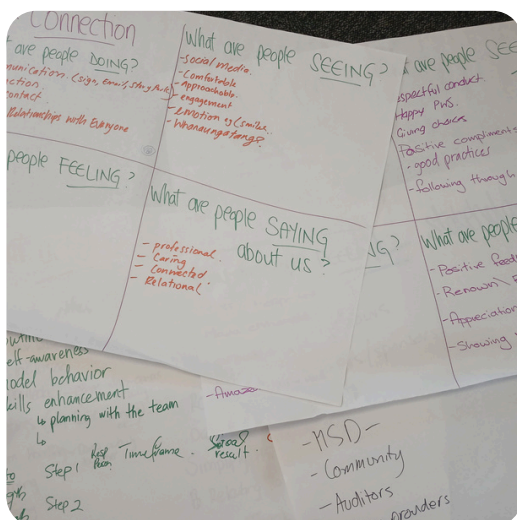 Connection
are people DOING?
munication. (sign, Email,
ction
contact.
Relationships with Everyone
What are people
SEEING?
- social media.
- Comfortable
- Approachable.
- engagement
- emotion eg (smiles.
- Whanaungatanga?
people FEELING?
What are people SAYING
about us?
- professional.
- Caring
- Connected
- Relational
are people SEE
espectful conduct.
Happy PWS.
Giving choices
Positive compliments
- good practices
- following through
NG?
What are people
- Positive feed
- Renown
- Appreciation
- Showing
- Amaze
elf-awareness
odel behavior
kills enhancement
↳ planning with the team
↳
Step 1 Resp Person Timeframe. result.
Step 2
- MSD -
- Community
- Auditors
roviders